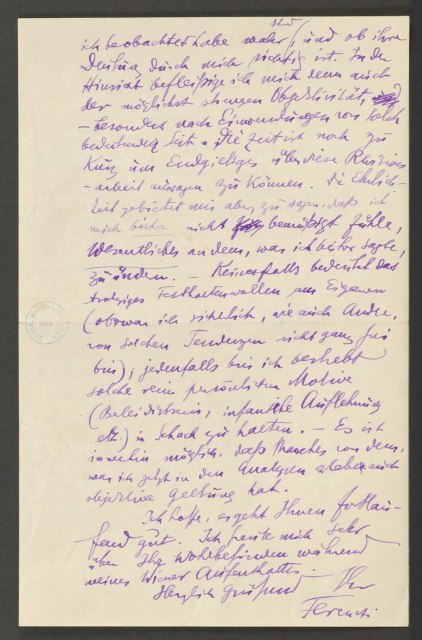 ich beobachtet habe wahr sind und ob ihre
Deutung durch mich richtig ist. In der
Hinsicht befleißige ich mich denn auch
der möglichst strengen Objektivität,
- besonders nach Einwendungen von solch
bedeutender Seite. Die Zeit ist noch zu
kurz um Endgiltiges über diese Revisions-
-arbeit aussagen zu können. Die Ehrlich-
keit gebietet mir aber zu sagen, daß ich
mich bisher nicht bemüßigt fühle,
Wesentliches an dem, was ich bisher sagte,
zu ändern. - Keinesfalls bedeutet das
trotziges Festhaltenwollen am Eigenen
(obzwar ich sicherlich, wie auch Andre,
von solchen Tendenzen nicht ganz frei
bin); jedenfalls bin ich bestrebt
solche rein persönlichen Motive
(Beleidigtsein, infantile Auflehnung
etc.) in Schach zu halten. - Es ist
immerhin möglich, daß Manches von dem,
was ich jetzt in den Analysen erlebe auch
objektive Geltung hat.
Ich hoffe, es geht Ihnen fortlau-
fend gut. Ich freute mich sehr
über Ihr Wohlbefinden während
meines Wiener Aufenthaltes.
Herzlich grüßend Ihr
Ferenczi